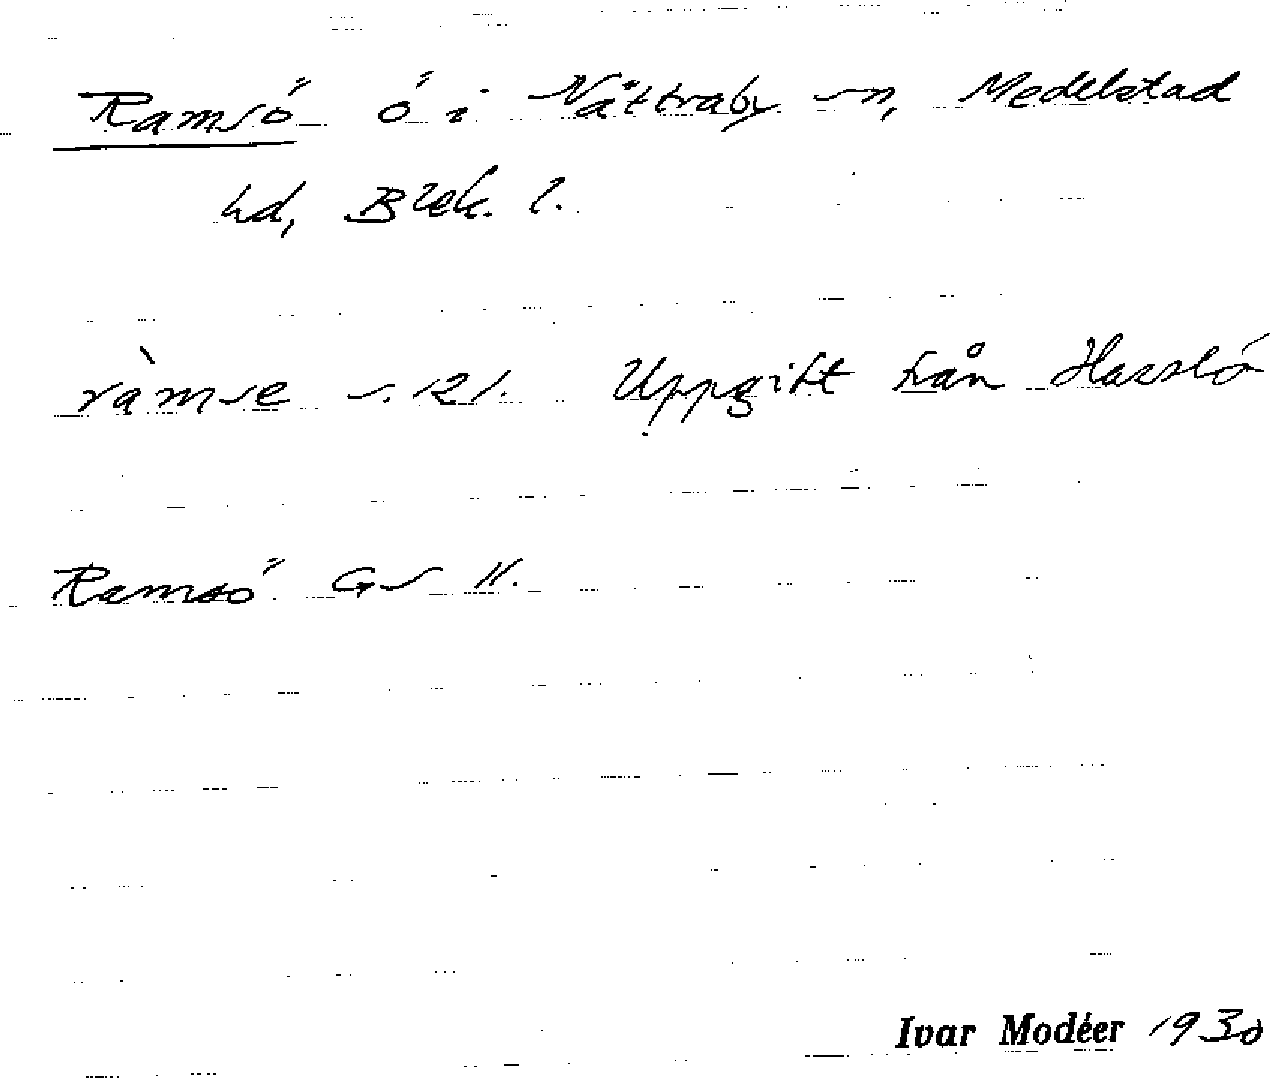 Ramsö ö i Nättraby sn, Medelstad
hd, Blek. l.
ràmse s. 121. Uppgift från Hasslö
Ramsö GS H.
Ivar Modéer 1930